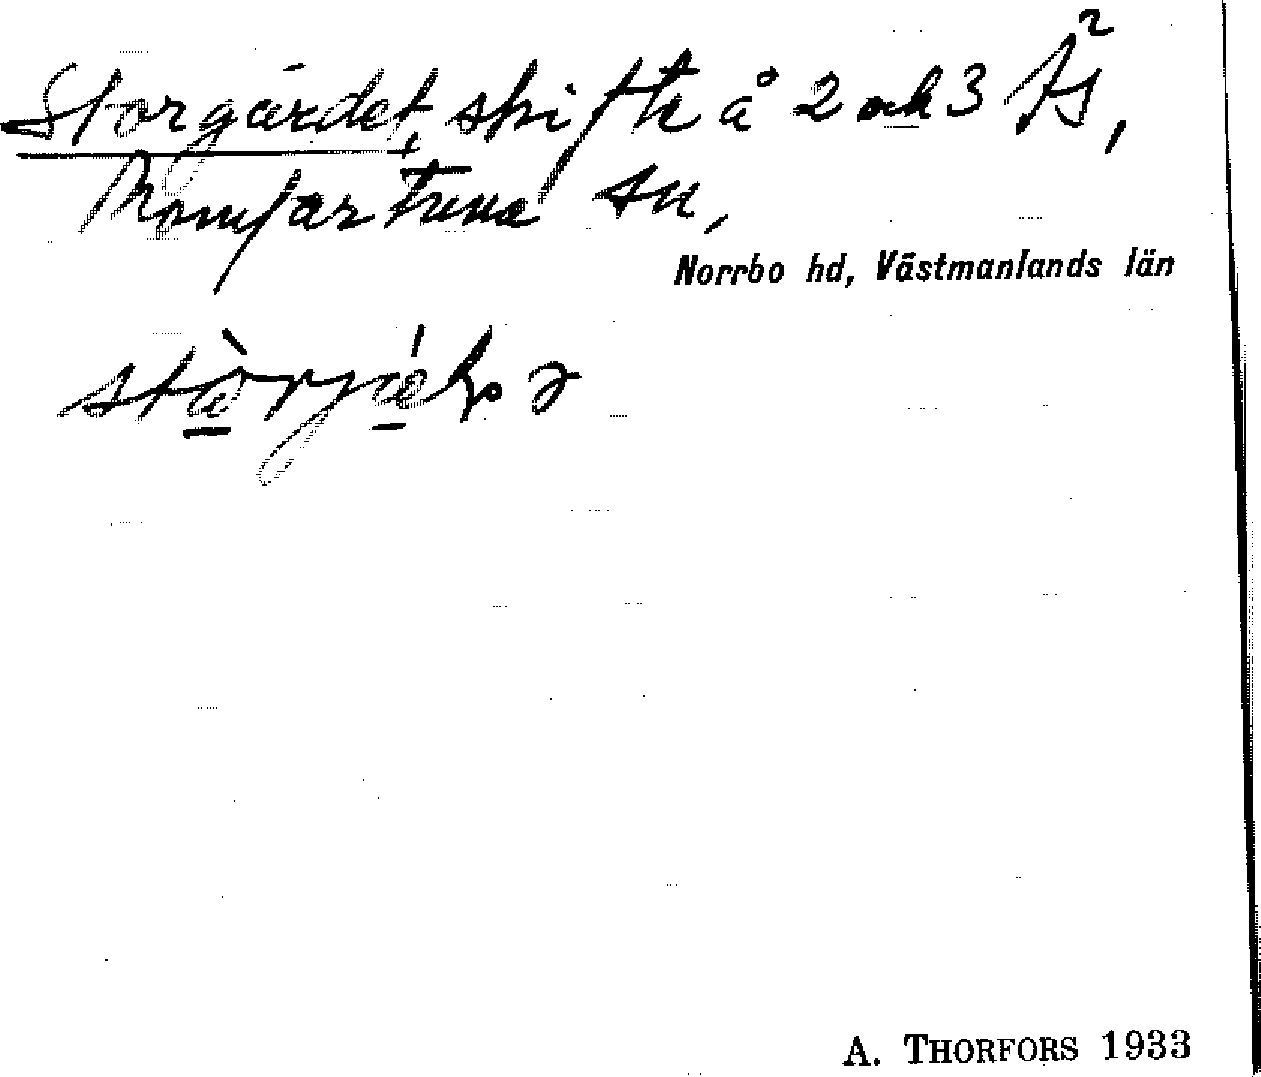 Storgärdet, skifte å 2 och 3 Ås²,
Romfartuna sn,
Norrbo hd, Västmanlands län
A. THORFORS 1933